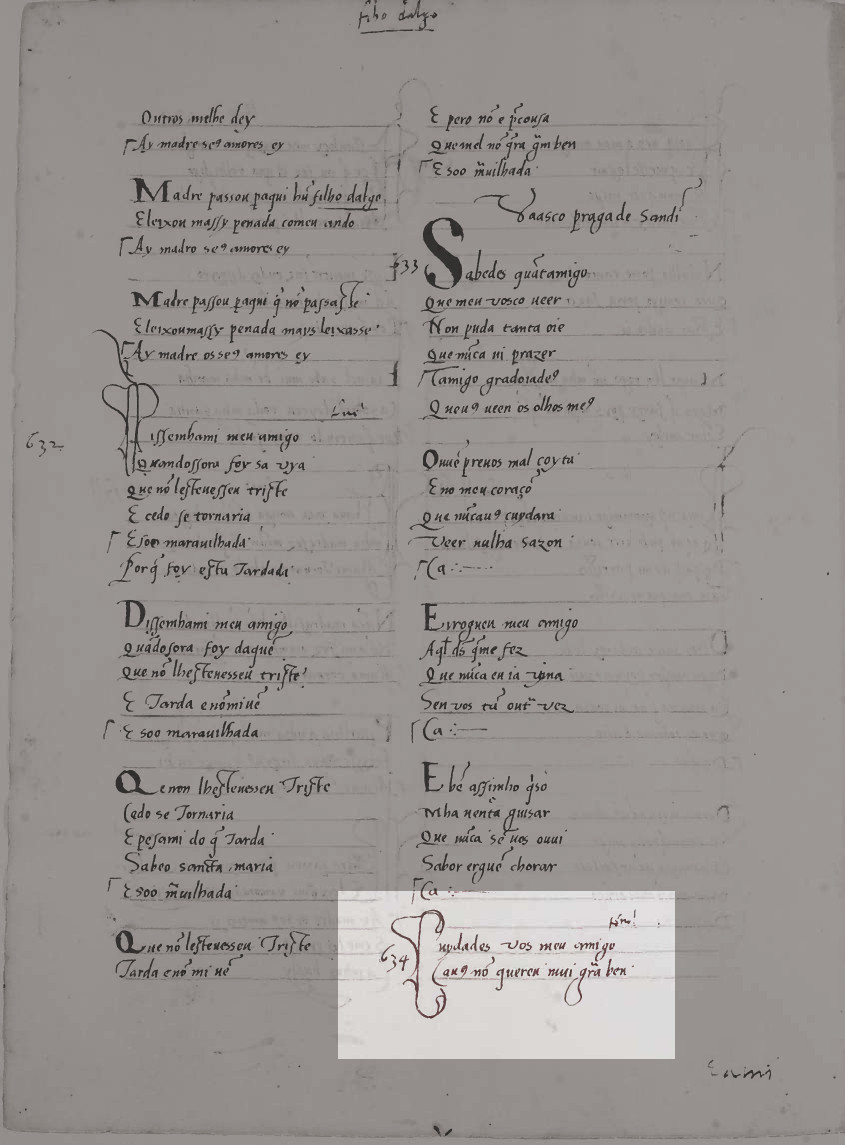 filho dalgo
Outros melhe dey
Ay madre seꝯ amores ey
Madre passou paqui hũ filho dalgo
Eleixou massy penada comeu ando
Ay madro seꝯ amores ey
Madre passou paqui q̃ nõ passasse
Eleixoumassy penada mays leixasse
Ay madre os seꝯ amores ey
632
Dissemhami meu amigo
Quandossora foy sa uya
Que nõ lesteuessen triste
E cedo se tornaria
E soo marauilhada
Porq̃ foy esta Tardada
Dissemhami meu amigo
Quãdosora foy daquẽ
Que nõ lhesteuesseu triste
E Tarda enõ mi uẽ
E soo marauilhada
Que non lhesteuessen Triste
Cedo se Tornaria
E pesami do q̃ Tarda
Sabeo sancta maria
E soo m̃uilhada
Que nõ lesteuessen Triste
Tarda enõ mi uẽ
E pero nõ e p̃cousa
Quemel nõ q̃ra g̃m ben
E soo m̃uilhada
Vaasco praga de Sandĩ
633
Sabedes quãtamigo
Que meu uosco ueer
Non puda tanta oie
Que nũca ui prazer
Tamigo gradoiadeꝯ
Queuꝯ ueen os olhos meꝯ
Ouuẽ preuos mal coyta
E no meu coraçõ
Que nũcauꝯ cuydara
Veer nulha sazon
Ca
E rroguen meu amigo
Aql̃ ds̃ q̃me fez
Que nũca en ia uyua
Sen uos tã out̃ uez
Ca
E bẽ assinho q̃so
Mha uentã guisar
Que nũca sẽ uos ouui
Sabor erguẽ chorar
Ca
634
Cuydades uos meu amigo
Cauꝯ nõ queren mui grã ben